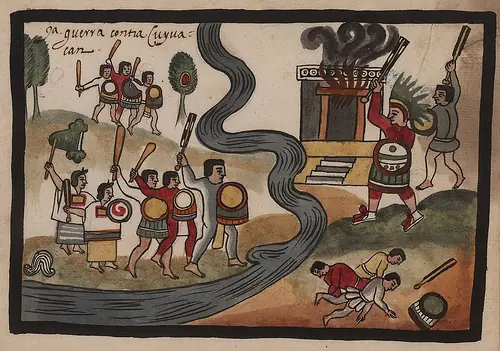 La guerra contra Cuyua-
can-